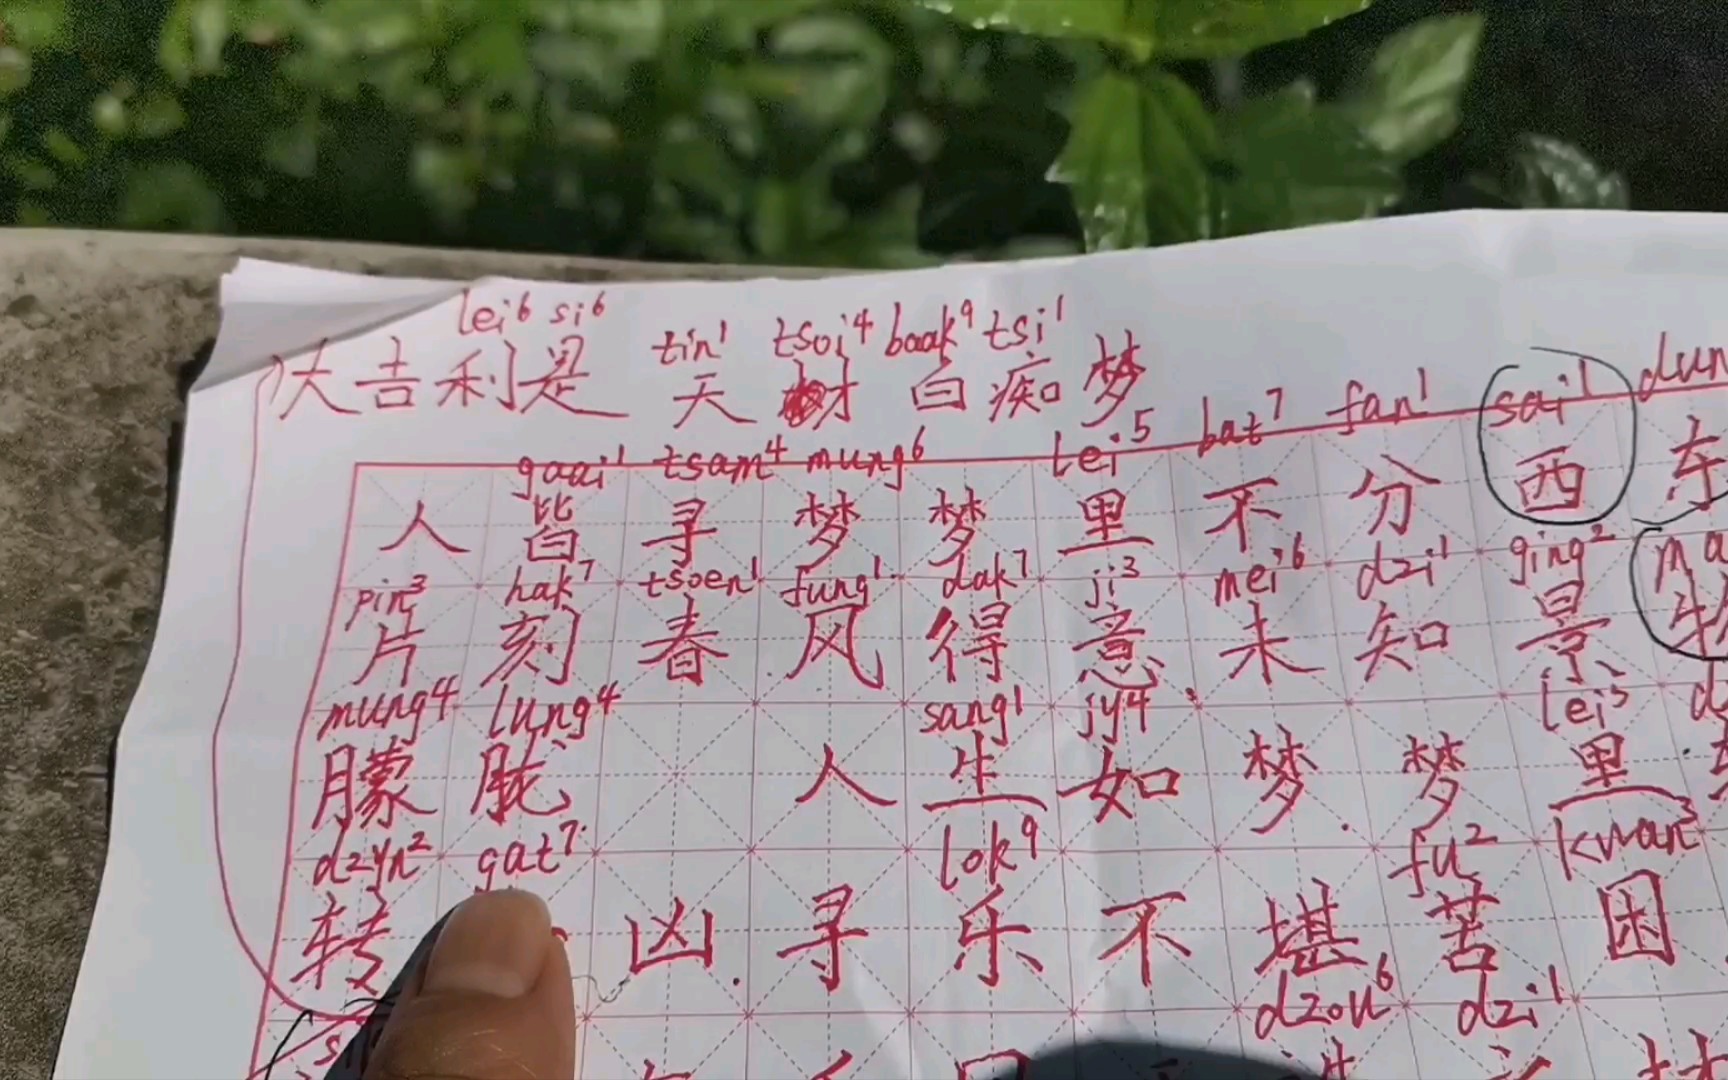 lei⁶ si⁶
tin¹ tsoi⁴ baak⁹ tsi¹
大吉利是 天财白痴梦
gaai¹ tsam⁴ mung⁶ lei⁵ bat⁷ fan¹ sai¹
人皆寻梦梦里不分西东
pin³ hak⁷ tsoen¹ fung¹ dak⁷ ji³ mei⁶ dzi¹ ging²
片刻春风得意未知景
mung⁴ lung⁴ sang¹ jy⁴ lei⁵
朦胧 人生如梦.梦里
dzyn² gat⁷ lok⁹ fu² kwan³
转 凶.寻乐不堪苦困
dzou⁶ dzi¹